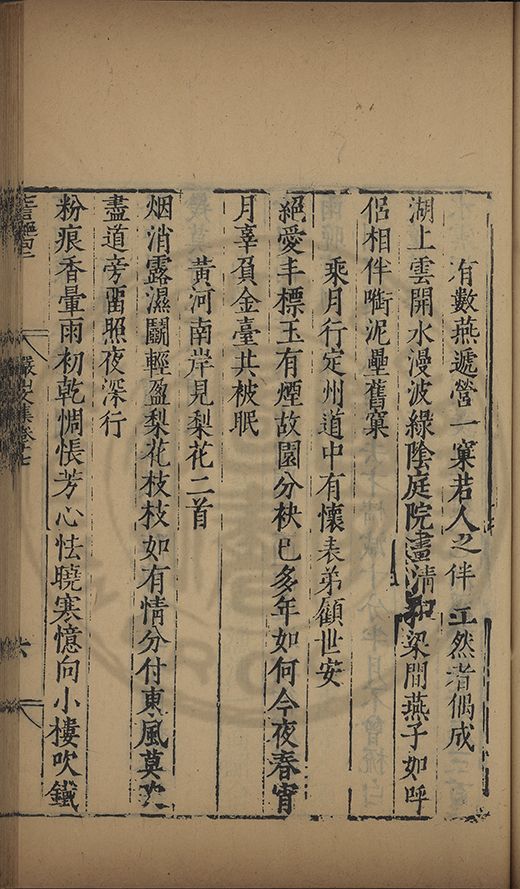 有數燕遞營一窠若人之伴工然者偶成
湖上雲開水漫波綠陰庭院晝清和梁間燕子如呼
侶相伴啣泥壘舊窠
乘月行定州道中有懷表弟顧世安
絕愛丰標玉有煙故園分袂已多年如何今夜春宵
月辜負金臺共被眠
黃河南岸見梨花二首
烟消露濕鬬輕盈梨花枝枝如有情分付東風莫吹
盡道旁畱照夜深行
粉痕香暈雨初乾惆悵芳心怯曉寒憶向小樓吹鐵
集卷七
六